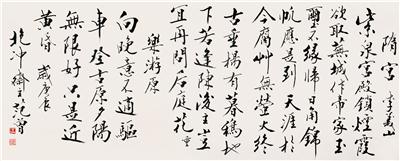 隋宫 李義山
紫泉宫殿鎖煙霞
欲取蕪城作帝家玉
璽不缘歸日角錦
帆應是到天涯於
今腐艸無螢火終
古垂楊有暮鴉地
下若逢陳後主豈
宜再問后庭花 重
樂游原
向晚意不適驅
車登古原夕陽
無限好只是近
黄昏 歲庚辰
抱冲齋主范曾